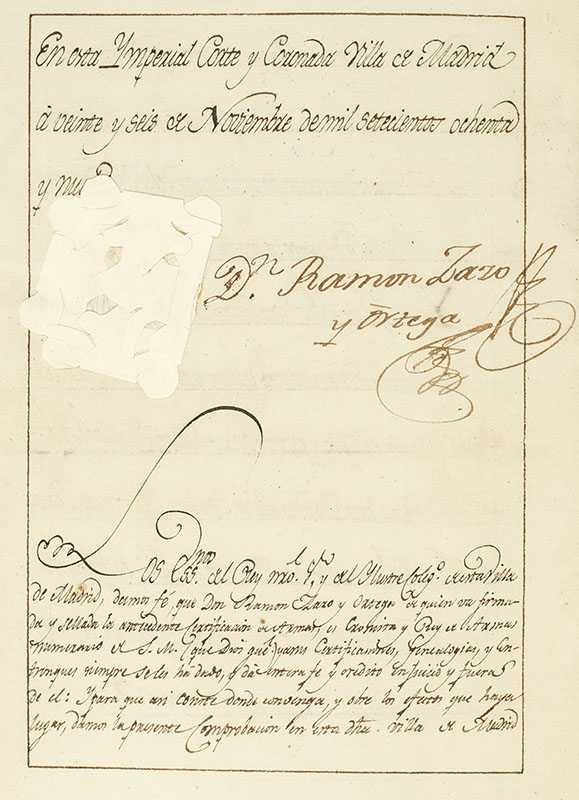 En esta Ymperial Corte y Coronada Villa de Madrid
à veinte y seis de Noviembre de mil setecientos ochenta
y nu
Dn. Ramon Zazo
y Ortega
Los Essnos. del Rey nro. Sr. y del Ylustre Coleg.o de esta Villa
de Madrid, damos fé, que Don Ramon Zazo y Ortega de quien va firma-
da y sellada la antecedente Certificacion de Armas, es Cronista y Rey de Armas
numerario de S. M. (que Dios gue) y a sus Certificaciones, Genealogias, y En-
tronques siempre se les ha dado, y dà entera fe y credito en juicio y fuera
de el: Y para que asi conste donde convenga, y obre los efectos que haya
lugar, damos la presente Comprobacion en esta dha. Villa de Madrid